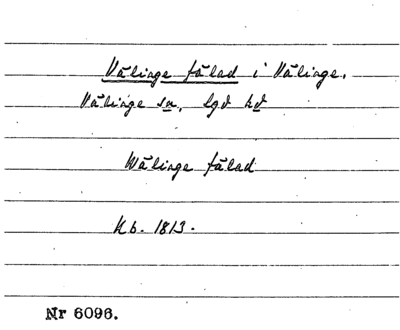 Vålinge fälad i Vålinge.
Vålinge sn, Lgd hd
Wålinge fälad
Kb. 1813.
Nr 6096.